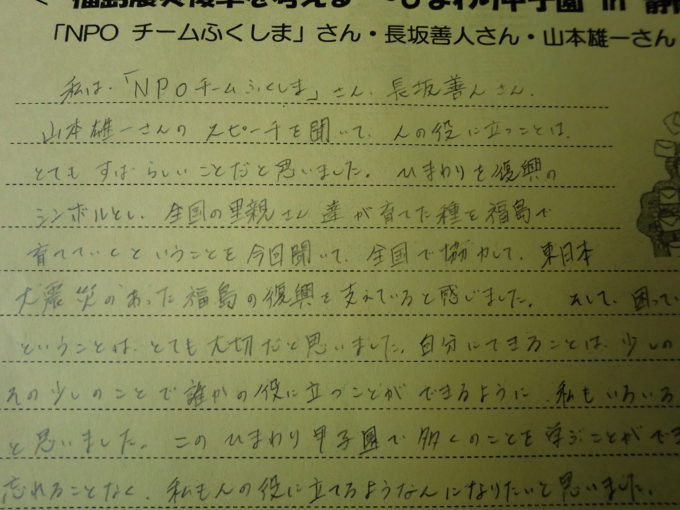 福島震災復幸を考える ひまわり甲子園 in 静
「NPO チームふくしま」さん・長坂善人さん・山本雄一さん
私は、「NPOチームふくしま」さん、長坂善人さん、
山本雄一さんのスピーチを聞いて、人の役に立つことは、
とてもすばらしいことだと思いました。ひまわりを復興の
シンボルとし、全国の里親さん達が育てた種を福島で
育てていくということを今回聞いて、全国で協力して、東日本
大震災のあった福島の復興を支えていると感じました。そして、困ってい
ということは、とても大切だと思いました。自分にできることは、少しの
その少しのことで誰かの役に立つことができるように、私もいろいろ
と思いました。このひまわり甲子園で多くのことを学ぶことができ
忘れることなく、私も人の役に立てるような人になりたいと思いました。